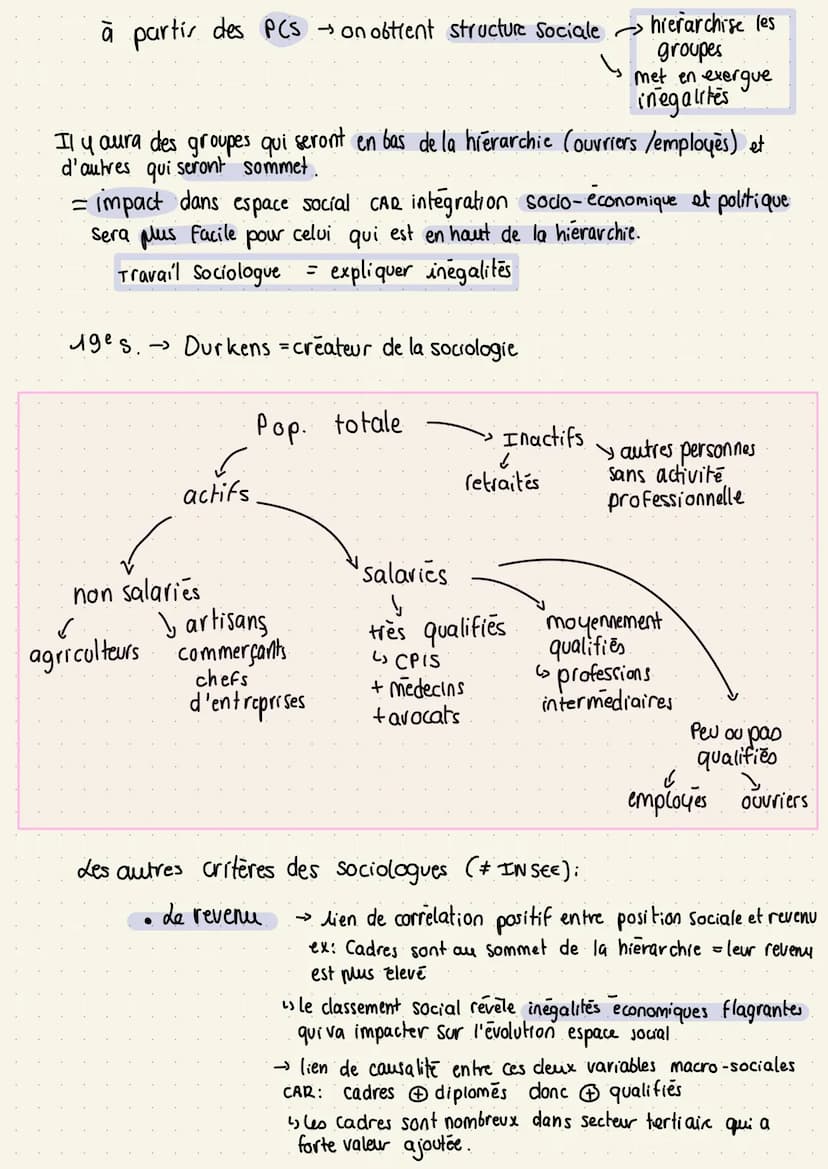 à partir des PCS → on obtient structure sociale → hiérarchise les
groupes
↘ met en exergue
inégalités
Il y aura des groupes qui seront en bas de la hiérarchie (ouvriers /employés) et
d'autres qui seront sommet.
= impact dans espace social CAR intégration socio-économique et politique
sera plus facile pour celui qui est en haut de la hiérarchie.
Travail Sociologue = expliquer inégalités
19e s. → Durkens = créateur de la sociologie
Pop. totale
Inactifs
retraités
autres personnes
sans activité
professionnelle
actifs
non salariés
agriculteurs
artisans
commerçants
chefs
d'entreprises
Salariés
très qualifiés
↳ CPIS
+ médecins
+ avocats
moyennement
qualifiés
↳ professions
intermédiaires
Peu ou pas
qualifiés
employés
ouvriers
Les autres critères des sociologues (≠ INSEE):
• Le revenu → lien de corrélation positif entre position sociale et revenu
ex: Cadres sont au sommet de la hiérarchie = leur revenu
est plus élevé
↳ le classement social révèle inégalités économiques flagrantes
qui va impacter sur l'évolution espace social
→ lien de causalité entre ces deux variables macro-sociales
CAR: cadres ⊕ diplomés donc ⊕ qualifiés
↳ Les cadres sont nombreux dans secteur tertiaire qui a
forte valeur ajoutée.